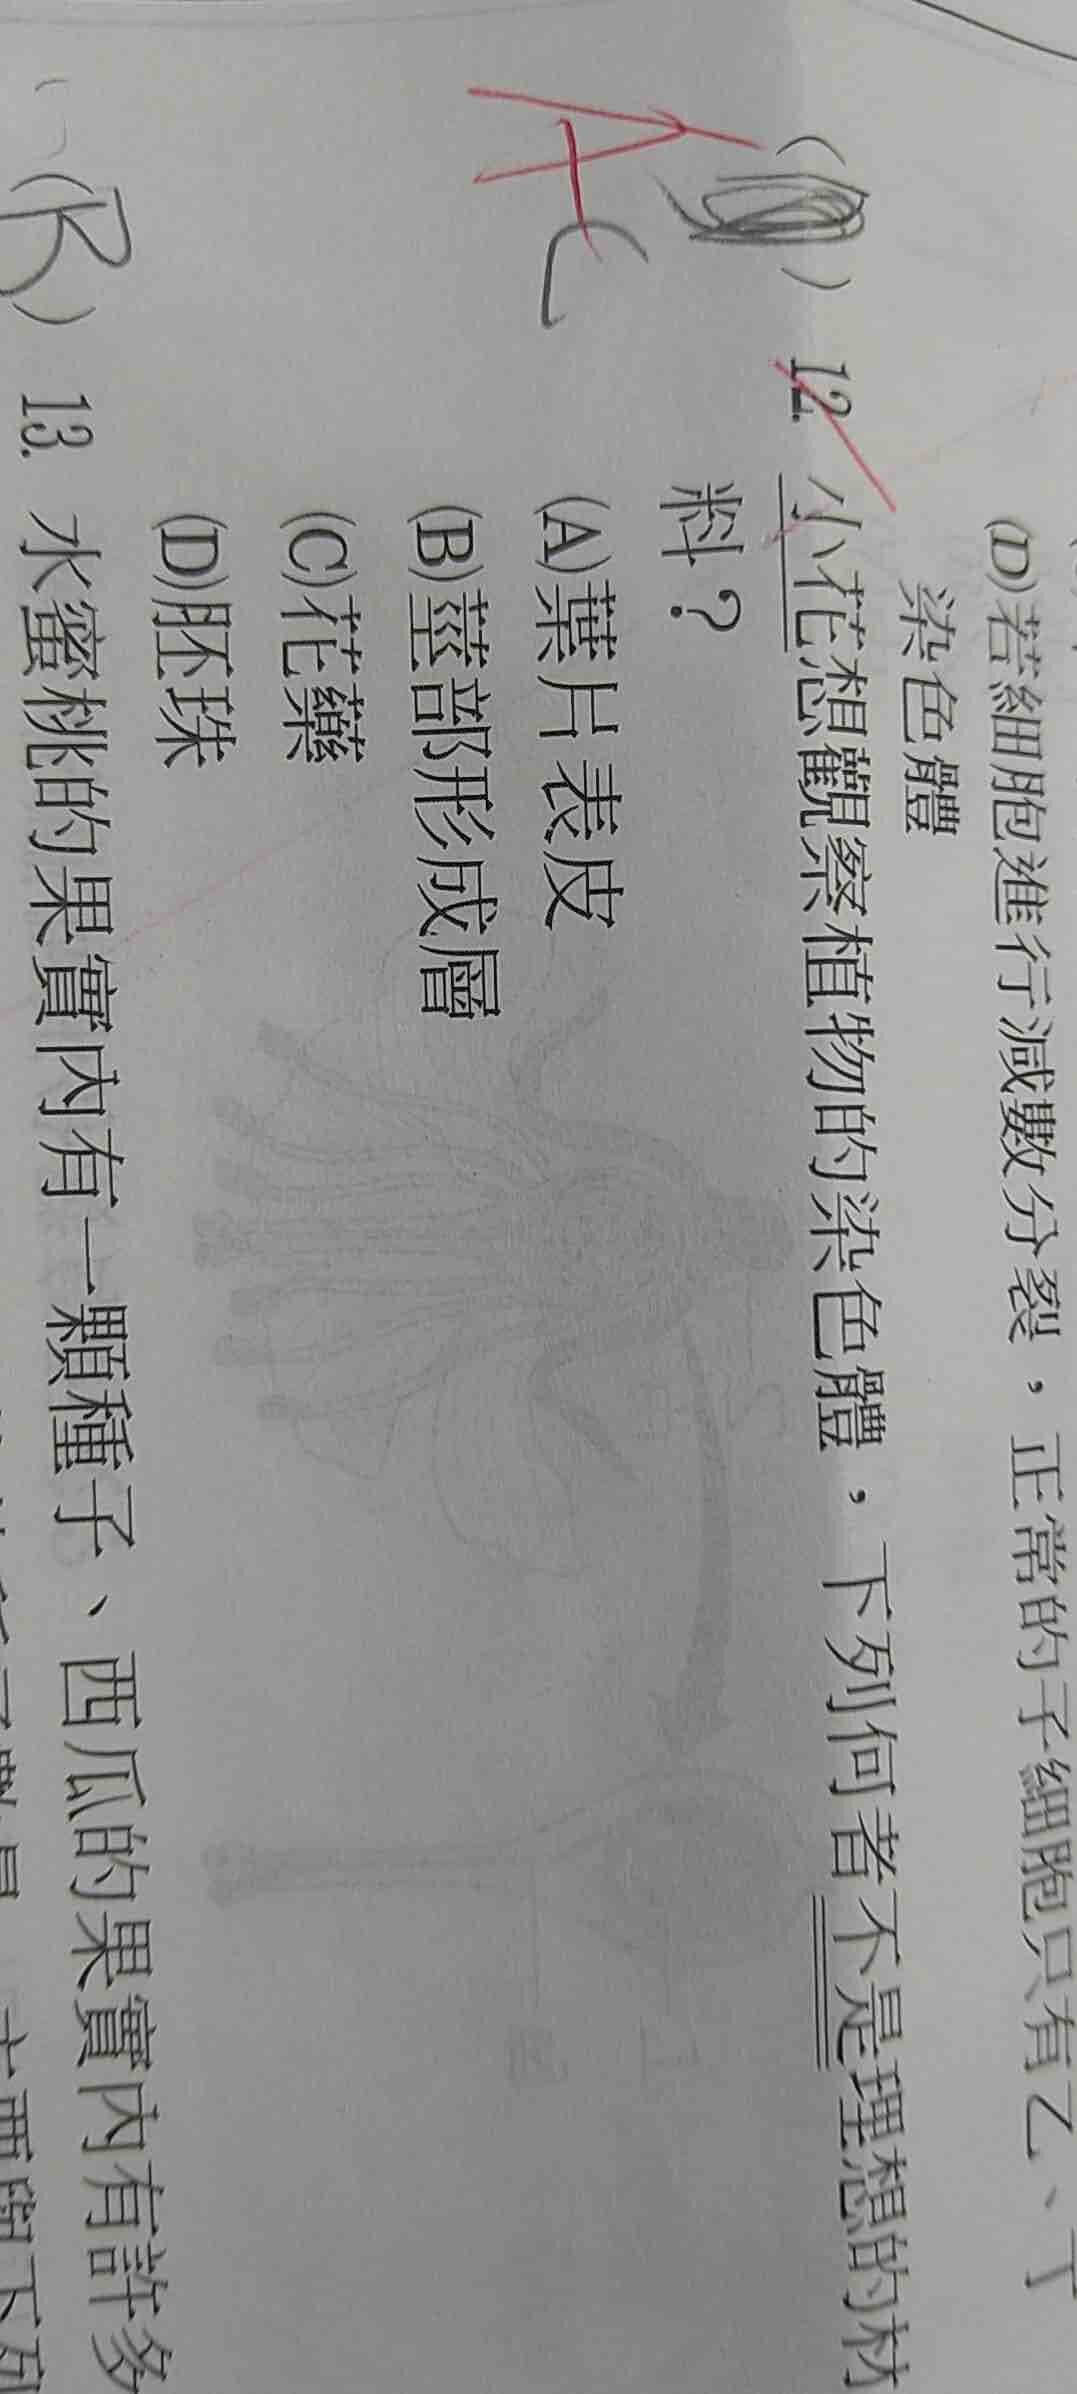 (D)若細胞進行減數分裂，正常的子細胞只有乙、丁
染色體
( ) 12. 小花想觀察植物的染色體，下列何者不是理想的材
料？
A
C
(A)葉片表皮
(B)莖部形成層
(C)花藥
(D)胚珠
(B) 13. 水蜜桃的果實內有一顆種子、西瓜的果實內有許多